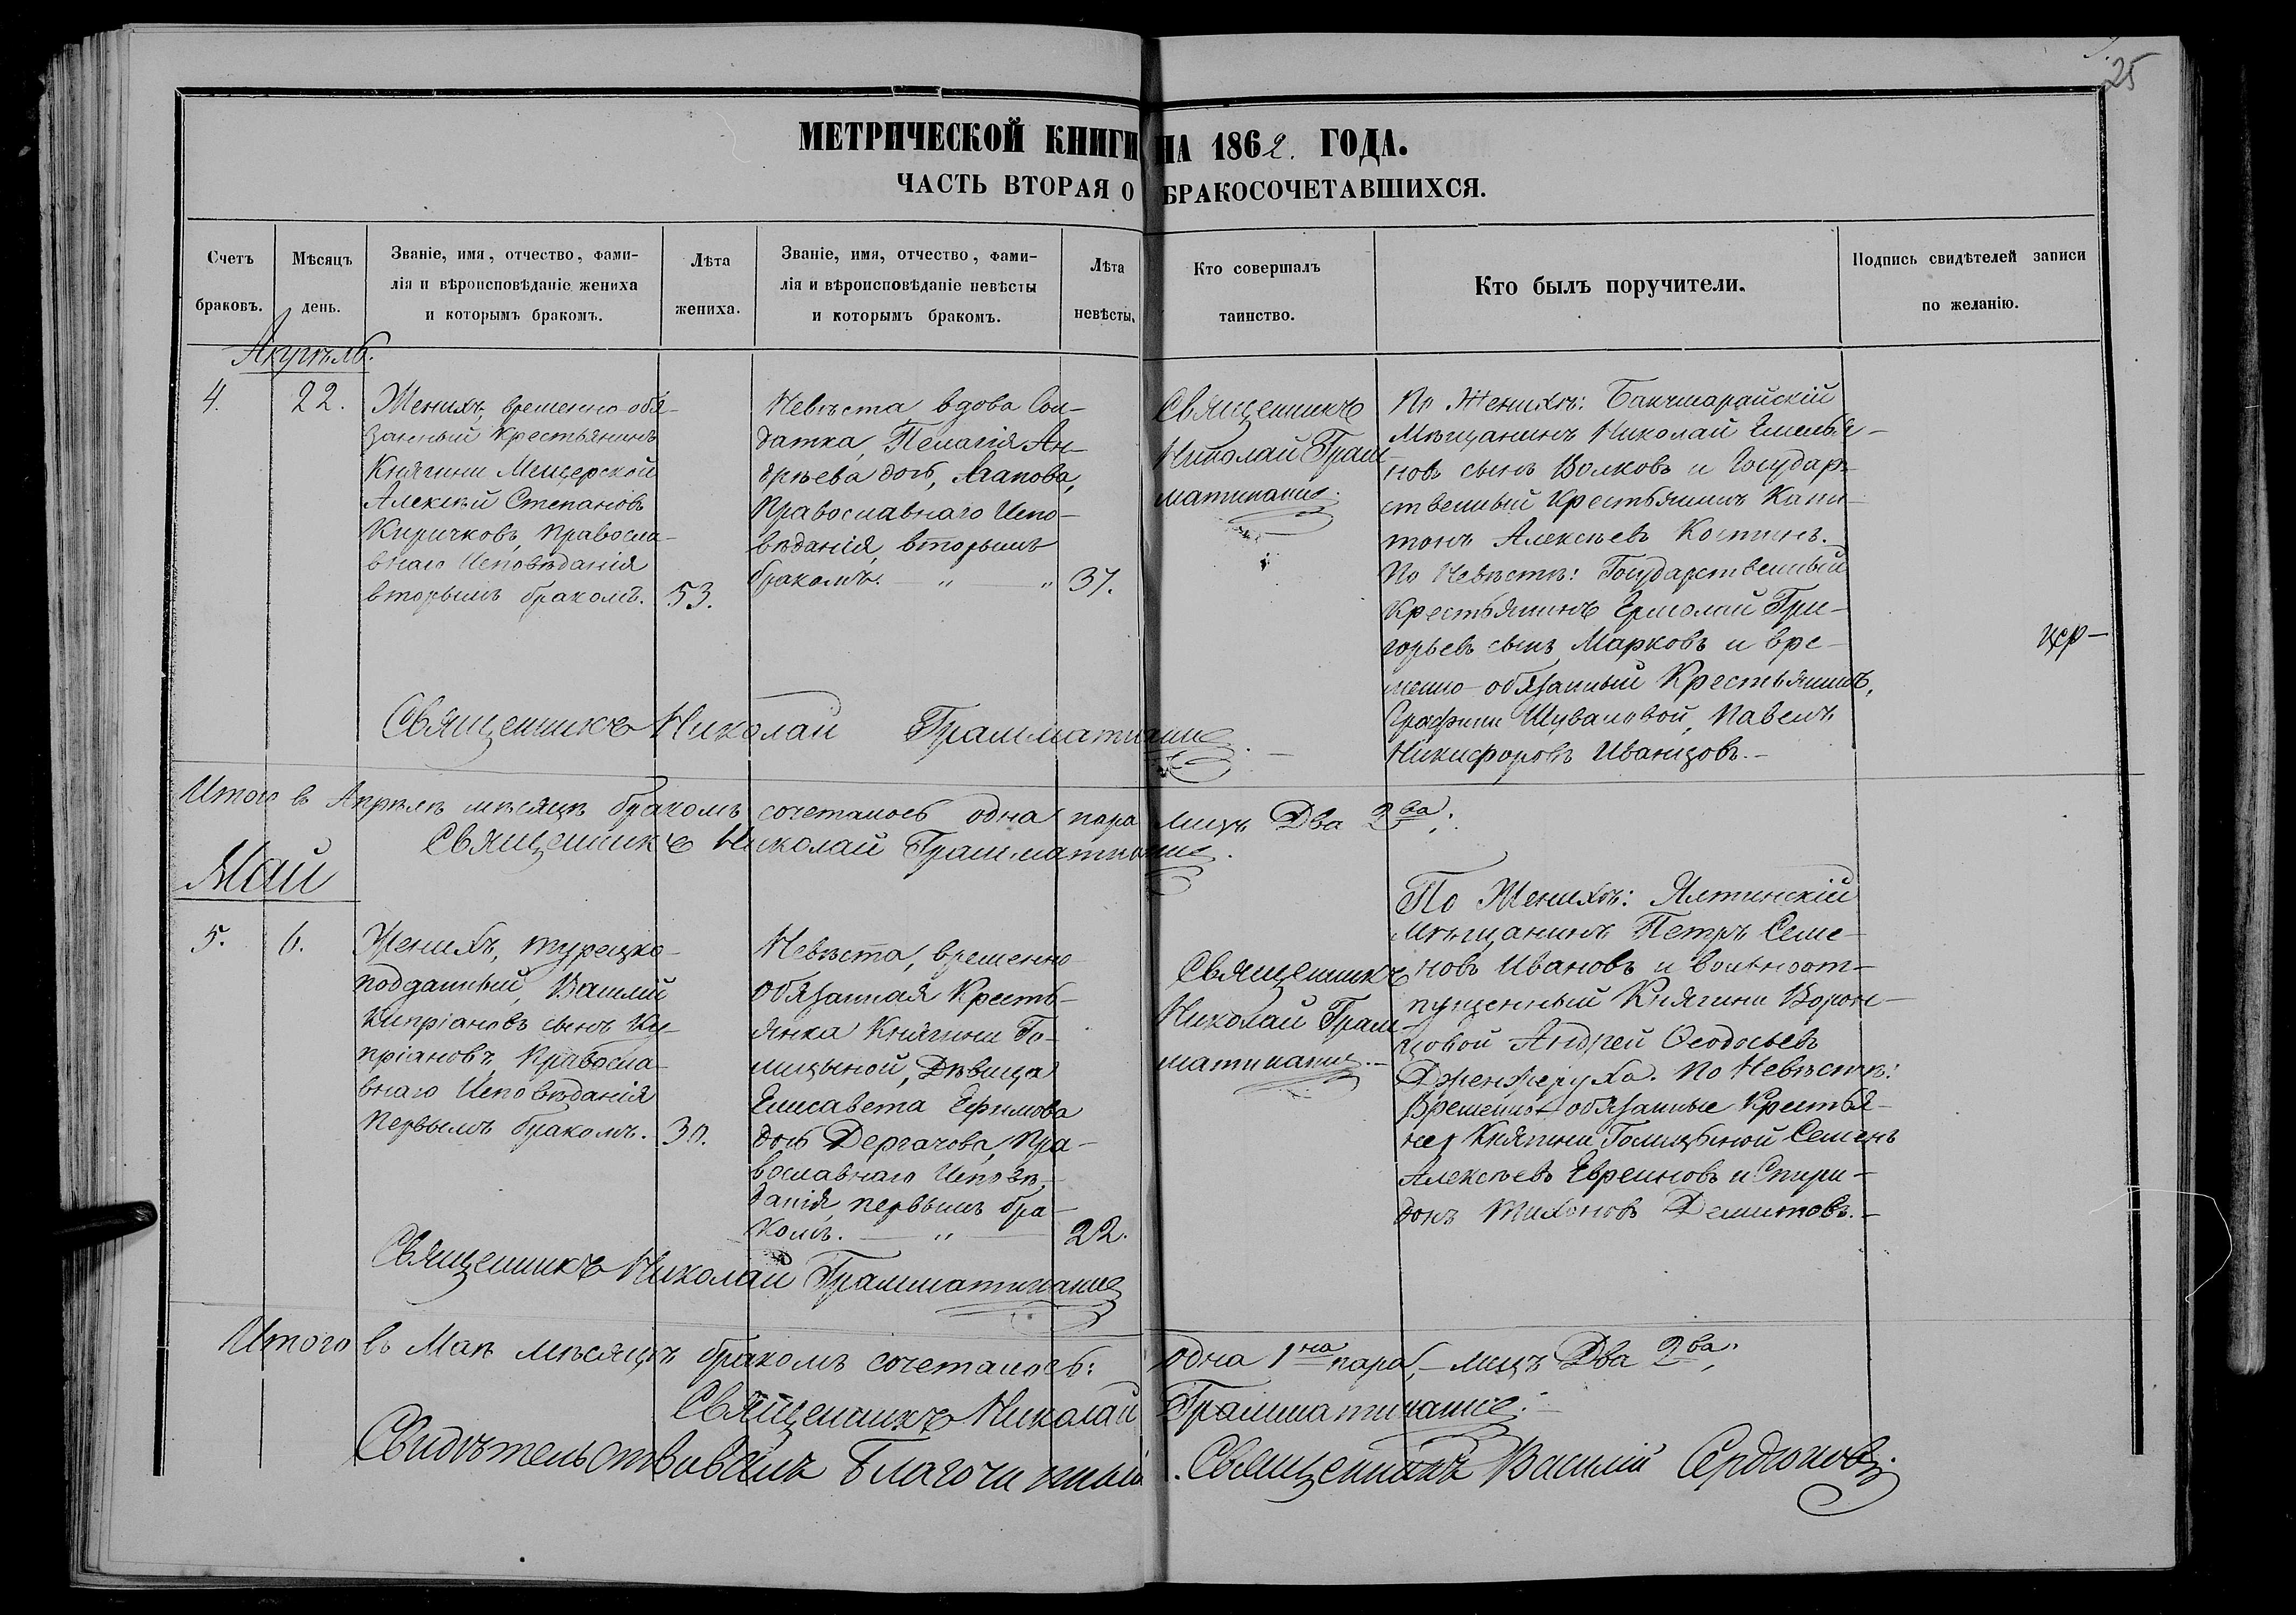 25
МЕТРИЧЕСКОЙ КНИГИ НА 1862. ГОДА.
ЧАСТЬ ВТОРАЯ О БРАКОСОЧЕТАВШИХСЯ.
Счетъ
браковъ.
Мѣсяцъ
день.
Званіе, имя, отчество, фами-
лія и вѣроисповѣданіе жениха
и которымъ бракомъ.
Лѣта
жениха.
Званіе, имя, отчество, фами-
лія и вѣроисповѣданіе невѣсты
и которымъ бракомъ.
Лѣта
невѣсты.
Кто совершалъ
таинство.
Кто былъ поручители.
Подпись свидѣтелей записи
по желанію.
Апрѣль.
4.
22.
Женихъ, временно-обя-
занный крестьянинъ
Княгини Мещерской
Алексѣй Степановъ
Киричковъ, Правосла-
внаго Исповѣданія
вторымъ бракомъ.
53.
Невѣста вдова Сол-
датка, Пелагія Ан-
дреева дочь, Агапова,
Православнаго Испо-
вѣданія, вторымъ
бракомъ. — „ „
37.
Священникъ
Николай Грам-
матикати.
По Женихѣ: Бахчисарайскій
Мѣщанинъ Николай Емелья-
новъ сынъ Волковъ и Государ-
ственный Крестьянинъ Капи-
тонъ Алексѣевъ Костинъ.
По Невѣстѣ: Государственный
Крестьянинъ Ермолай Гри-
горьевъ сынъ Марковъ и вре-
менно-обязанный Крестьянинъ,
Графини Шуваловой, Павелъ
Никифоровъ Иванцовъ.-
Священникъ Николай Грамматикати.
Итого въ Апрѣлѣ мѣсяцѣ бракомъ сочеталось одна пара лицъ Два 2ва.
Священникъ Николай Грамматикати.
Май
5.
6.
Женихъ, турецко-
подданный, Василій
Кипріановъ сынъ Ку-
пріановъ, Правосла-
внаго Исповѣданія
первымъ бракомъ.
30.
Невѣста, временно
обязанная Кресть-
янка Княгини Го-
лицыной, Дѣвица
Елисавета Ефимова
дочь Дергачова, Пра-
вославнаго Исповѣ-
данія, первымъ бра-
комъ. — „ —
22.
Священникъ
Николай Грам-
матикати.-
По Женихѣ: Ялтинскій
мѣщанинъ Петръ Семе-
новъ Ивановъ и вольноот-
пущенный Княгини Ворон-
цовой Андрей Ѳеодосьевъ
Дженжеруха. По Невѣстѣ:
Временно-обязанные Крестья-
не Княгини Голицыной Семенъ
Алексѣевъ Евреиновъ и Спири-
донъ Тихоновъ Демитовъ.-
Священникъ Николай Грамматикати
Итого въ Маѣ мѣсяцѣ бракомъ сочеталось: одна 1на пара, - лицъ Два 2ва.
Священникъ Николай Грамматикати.
Свидѣтельствовалъ Благочинный. Священникъ Василій Сердюковъ.